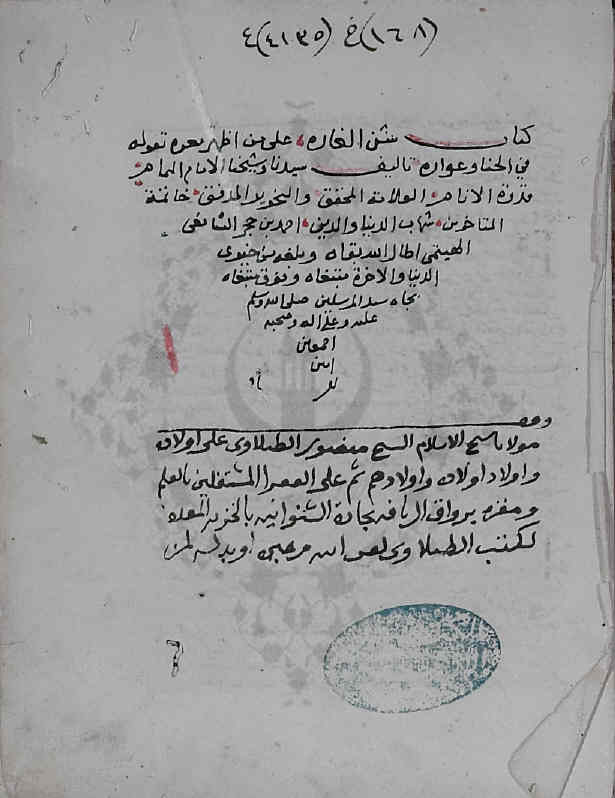 (١٦٨) خ (٤١٣٥) ٤
كتاب شن الغاره على من اظهر معره تقوله
في الحنا وعواره تاليف سيدنا وشيخنا الامام الماهر
قدوة الاناهر العلامة المحقق والنحرير المدقق خاتمة
المتاخرين شهاب الدنيا والدين احمد بن حجر الشافعى
الهيتمى اطال الله بقاه وبلغه من خيرى
الدنيا والاخرة مبتغاه وفوق مبتغاه
بجاه سيد المرسلين صلى الله وسلم
عليه وعلى اله وصحبه
اجمعين
امين
وقف
مولانا شيخ الاسلام الشيخ منصور الطبلاوى على اولاده
واولاد اولاده واولادهم ثم على الفقرا المشتغلين بالعلم
ومقره برواق الريافه بحارة الشنوانيه بالخزنه المعده
لكتب الطبلاوى لعن الله من
٦